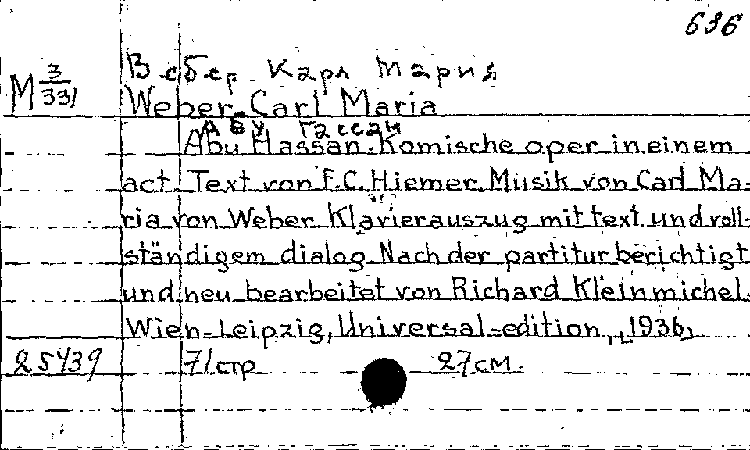 636
Вебер Карл Мария
М 3/331
Weber Carl Maria
Абу Гассан
Abu Hassan. Komische oper in einem
act. Text von F.C. Hiemer. Musik von Carl Ma-
ria von Weber. Klavierauszug mit text und voll-
ständigem dialog. Nach der partitur berichtigt
und neu bearbeitet von Richard Kleinmichel.
Wien-Leipzig, Universal-edition, 1936,
25439 71 стр 27 см.